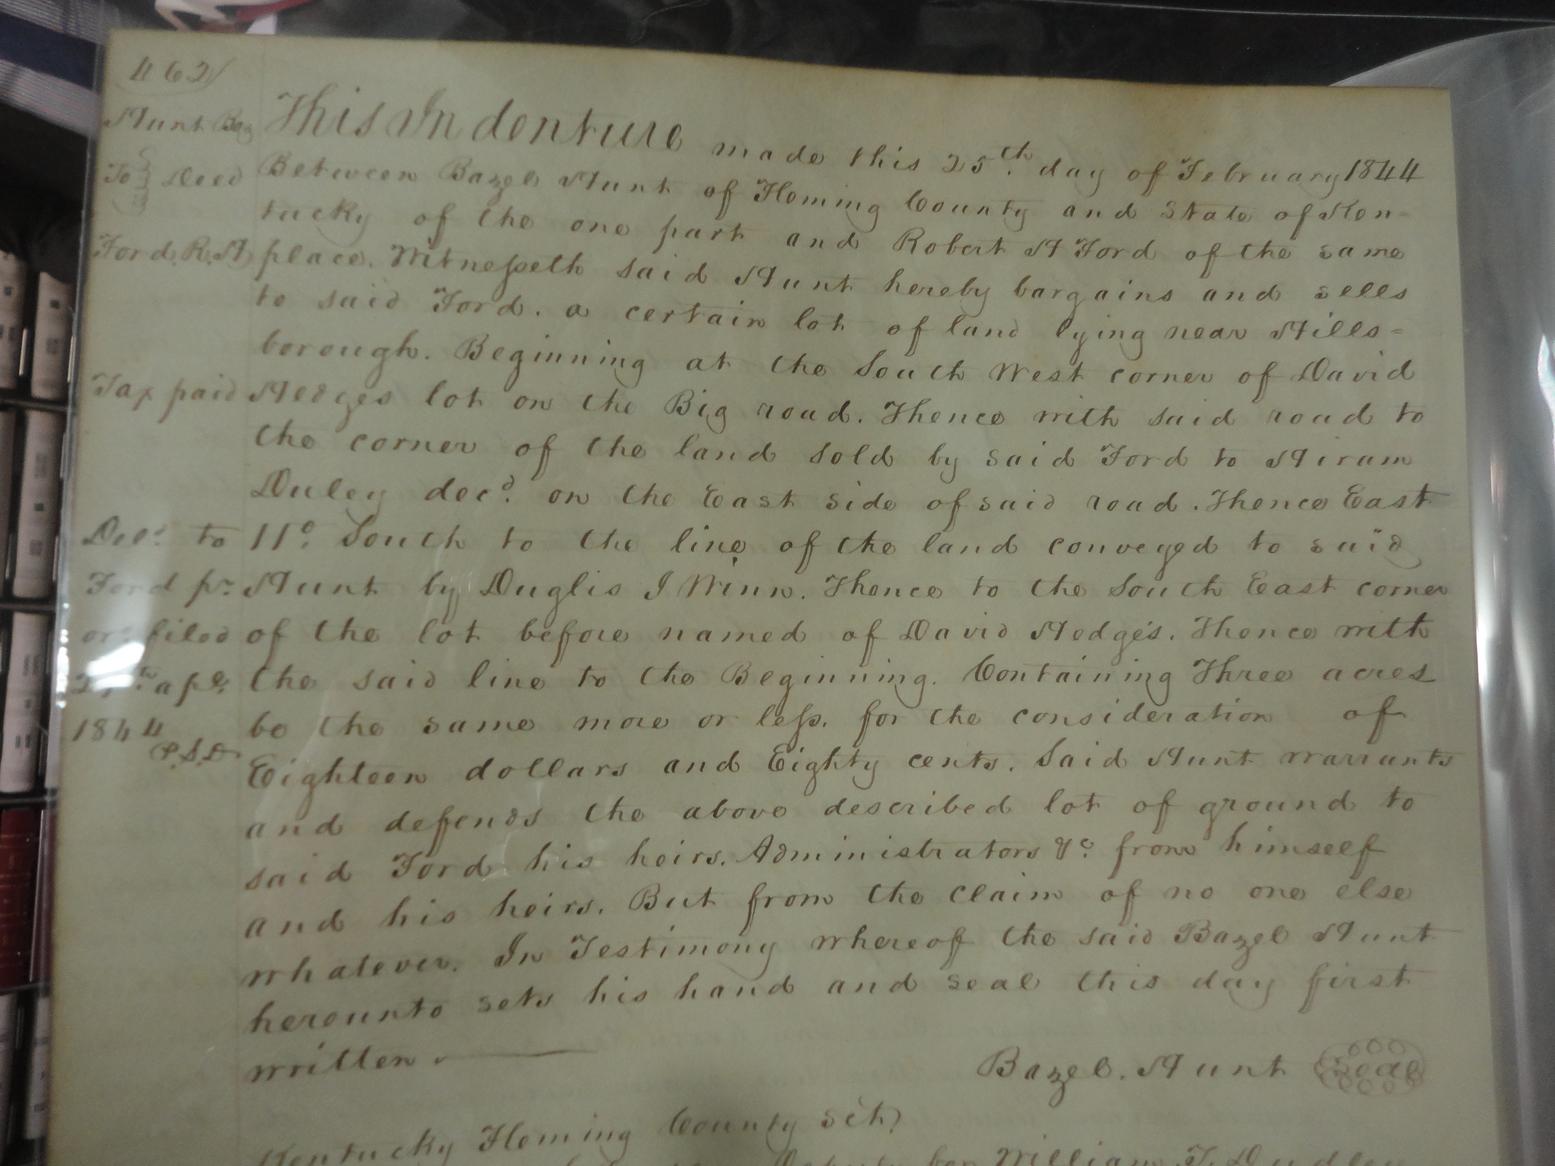 462
Hunt Baz
To } Deed
Ford. R. H
Tax paid
Deld. to
Ford pr.
ord. filed
1844
P.S.D
This Indenture made this 25th. day of February 1844
Between Bazel Hunt of Fleming County and State of Ken-
tucky of the one part and Robert H Ford of the same
place. Witnesseth said Hunt hereby bargains and sells
to said Ford. a certain lot of land lying near Hills=
borough. Beginning at the South West corner of David
Hedges lot on the Big road. Thence with said road to
the corner of the land sold by said Ford to Hiram
Duley decd. on the East side of said road. Thence East
11°. South to the line of the land conveyed to said
Hunt by Duglis I Winn. Thence to the South East corner
of the lot before named of David Hedge's. Thence with
the said line to the Beginning. Containing Three acres
be the same more or less. for the consideration of
Eighteen dollars and Eighty cents. Said Hunt warrants
and defends the above described lot of ground to
said Ford his heirs. Administrators &c. from himself
and his heirs. But from the claim of no one else
whatever. In Testimony whereof the said Bazel Hunt
hereunto sets his hand and seal this day first
written
Bazel. Hunt Seal
Kentucky Fleming County Sct,
William T. Dudley